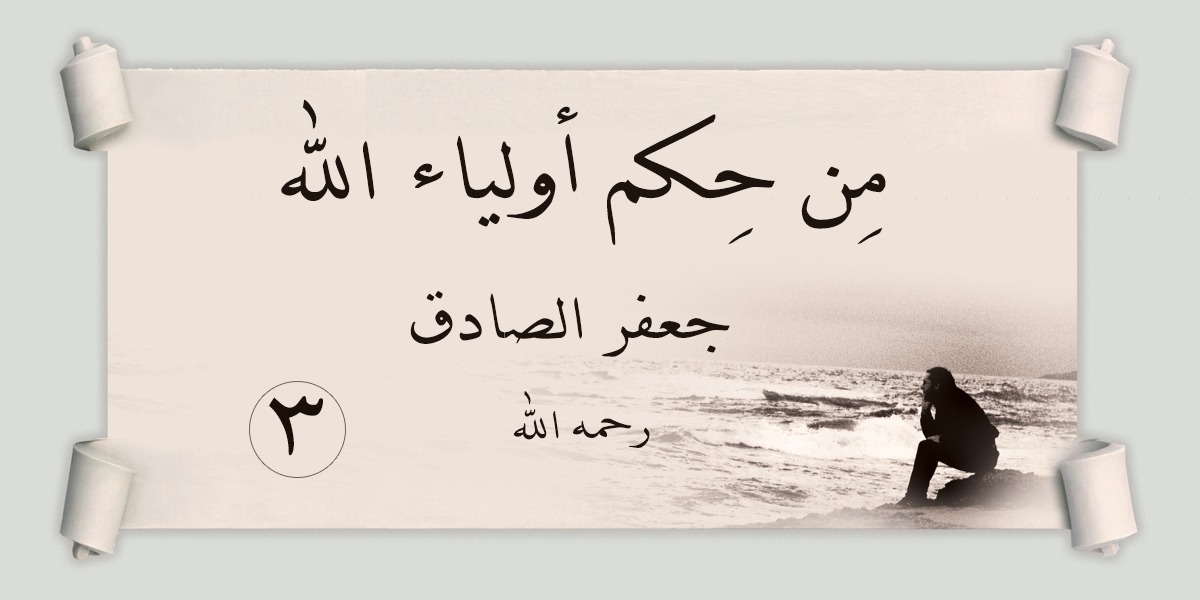 مِن حِكم أولياء الله
جعفر الصادق
رحمه الله
٣